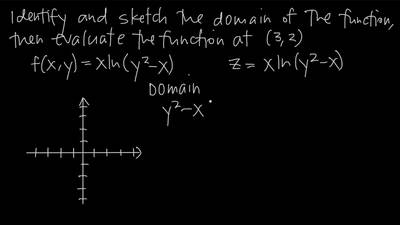 Identify and sketch the domain of the function,
then evaluate the function at (3,2)
f(x,y)=xln(y²-x) z=xln(y²-x)
Domain
y²-x